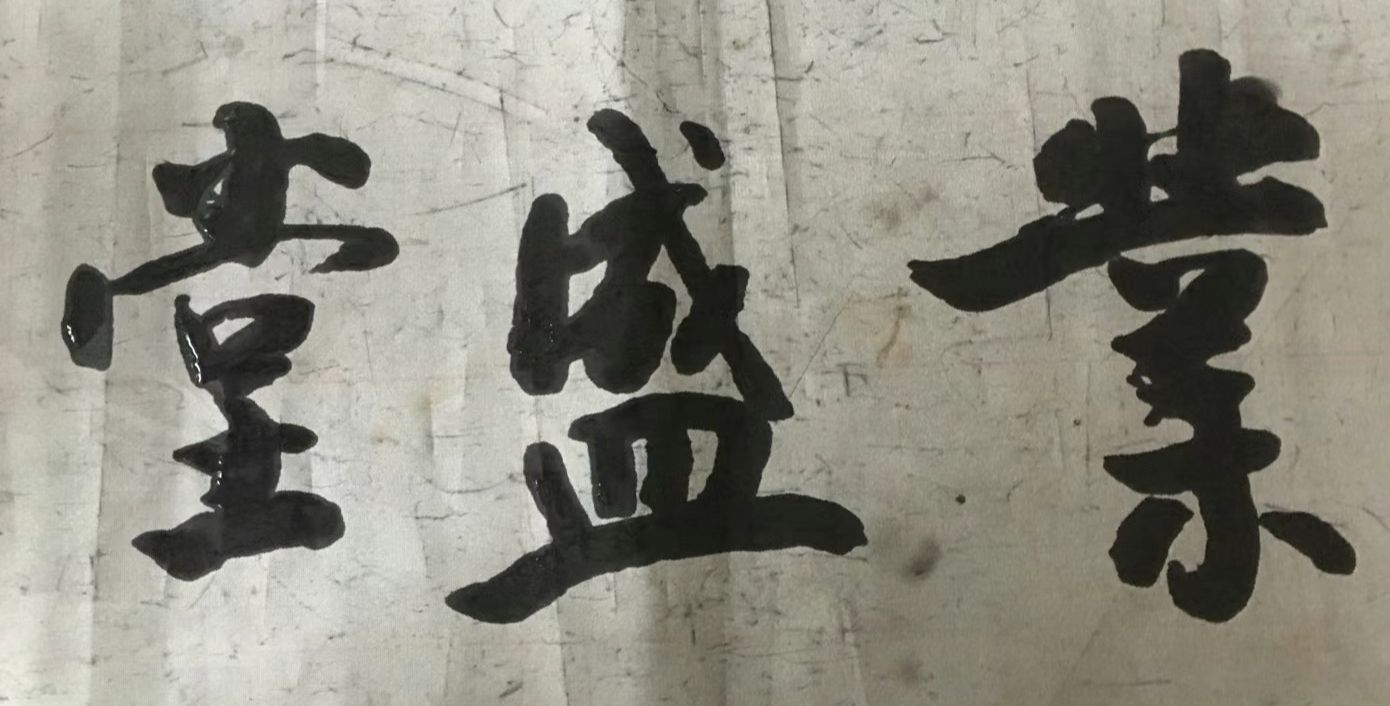 業盛堂